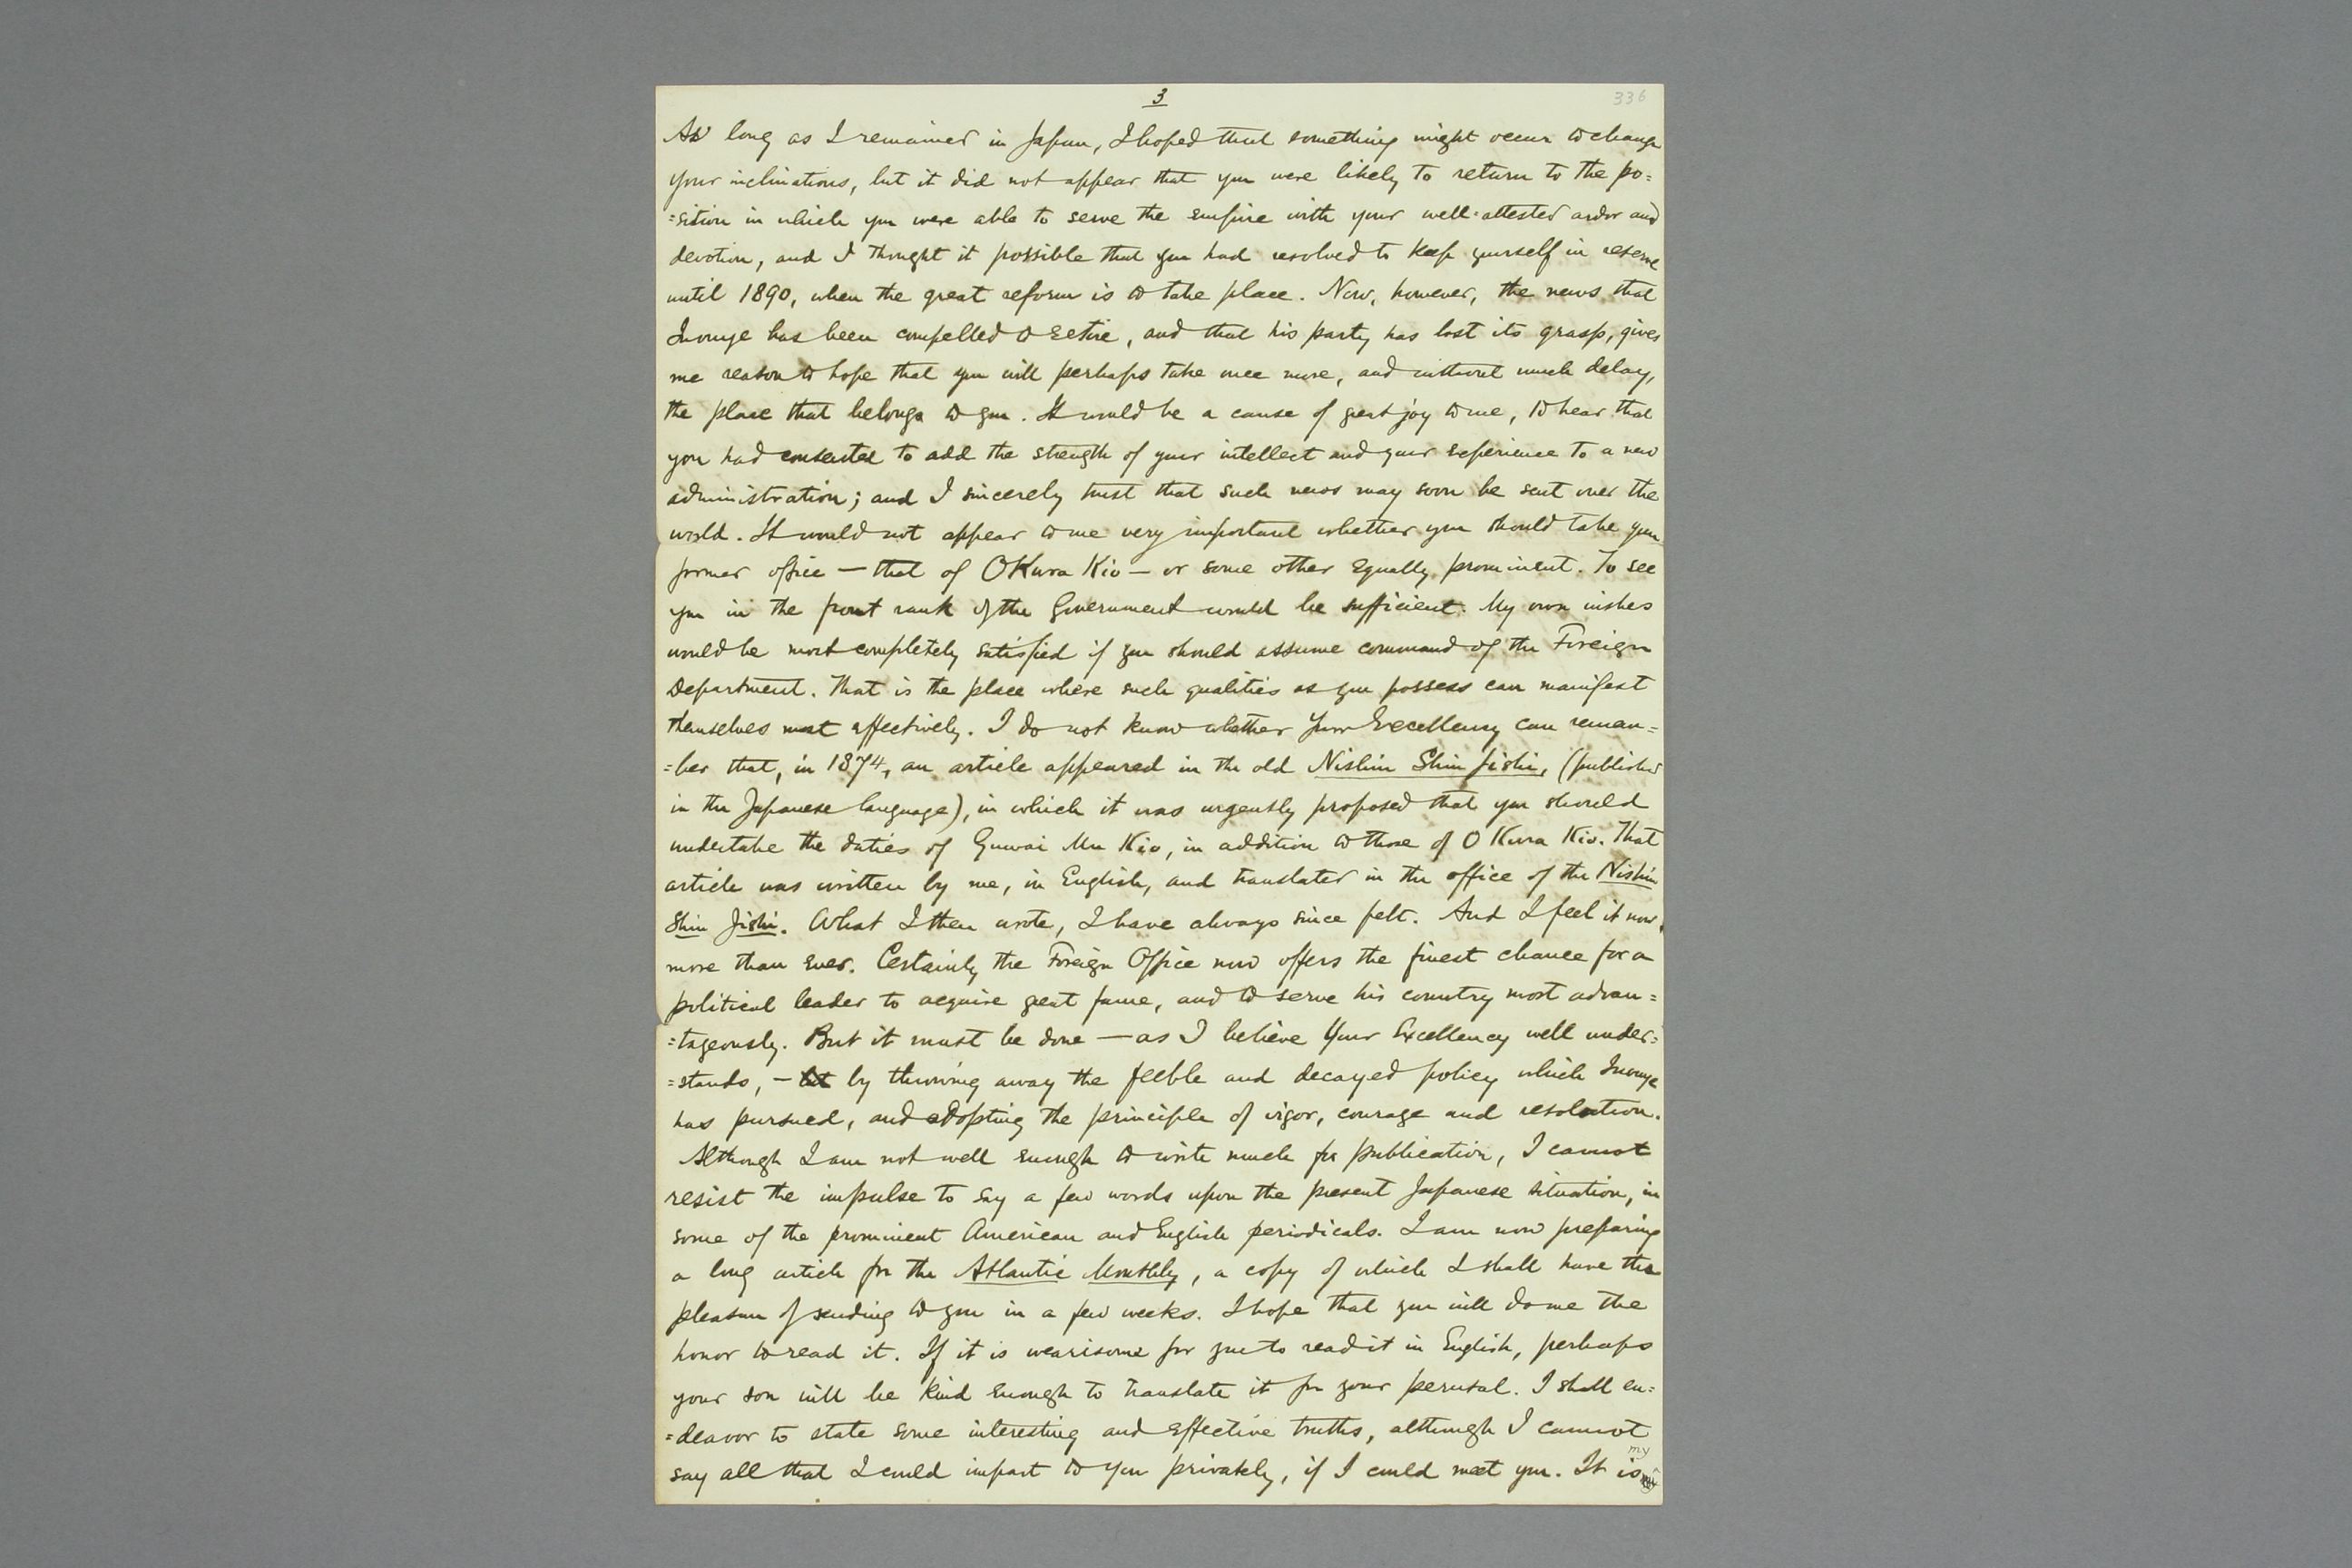 3
336
As long as I remained in Japan, I hoped that something might occur to change
your inclinations, but it did not appear that you were likely to return to the po=
=sition in which you were able to serve the empire with your well-attested ardor and
devotion, and I thought it possible that you had resolved to keep yourself in reserve
until 1890, when the great reform is to take place. Now, however, the news that
Inouye has been compelled to retire, and that his party has lost its grasp, gives
me reason to hope that you will perhaps take once more, and without much delay,
the place that belongs to you. It would be a cause of great joy to me, to hear that
you had consented to add the strength of your intellect and your experience to a new
administration; and I sincerely trust that such news may soon be sent over the
world. It would not appear to me very important whether you should take your
former office — that of OKura Kio — or some other equally prominent. To see
you in the front rank of the Government would be sufficient. My own wishes
would be most completely satisfied if you should assume command of the Foreign
Department. That is the place where such qualities as you possess can manifest
themselves most effectively. I do not know whether Your Excellency can remem=
=ber that, in 1874, an article appeared in the old Nishin Shin Jishi, (published
in the Japanese language), in which it was urgently proposed that you should
undertake the duties of Guwai Mu Kio, in addition to those of O Kura Kio. That
article was written by me, in English, and translated in the office of the Nishin
Shin Jishi. What I then wrote, I have always since felt. And I feel it now,
more than ever. Certainly the Foreign Office now offers the finest chance for a
political leader to acquire great fame, and to serve his country most advan=
=tageously. But it must be done — as I believe Your Excellency well under=
=stands, — by throwing away the feeble and decayed policy which Inouye
has pursued, and adopting the principle of vigor, courage and resolution.
Although I am not well enough to write much for publication, I cannot
resist the impulse to say a few words upon the present Japanese situation, in
some of the prominent American and English periodicals. I am now preparing
a long article for the Atlantic Monthly, a copy of which I shall have the
pleasure of sending to you in a few weeks. I hope that you will do me the
honor to read it. If it is wearisome for you to read it in English, perhaps
your son will be kind enough to translate it for your perusal. I shall en=
=deavor to state some interesting and effective truths, although I cannot
say all that I could impart to you privately, if I could meet you. It is my